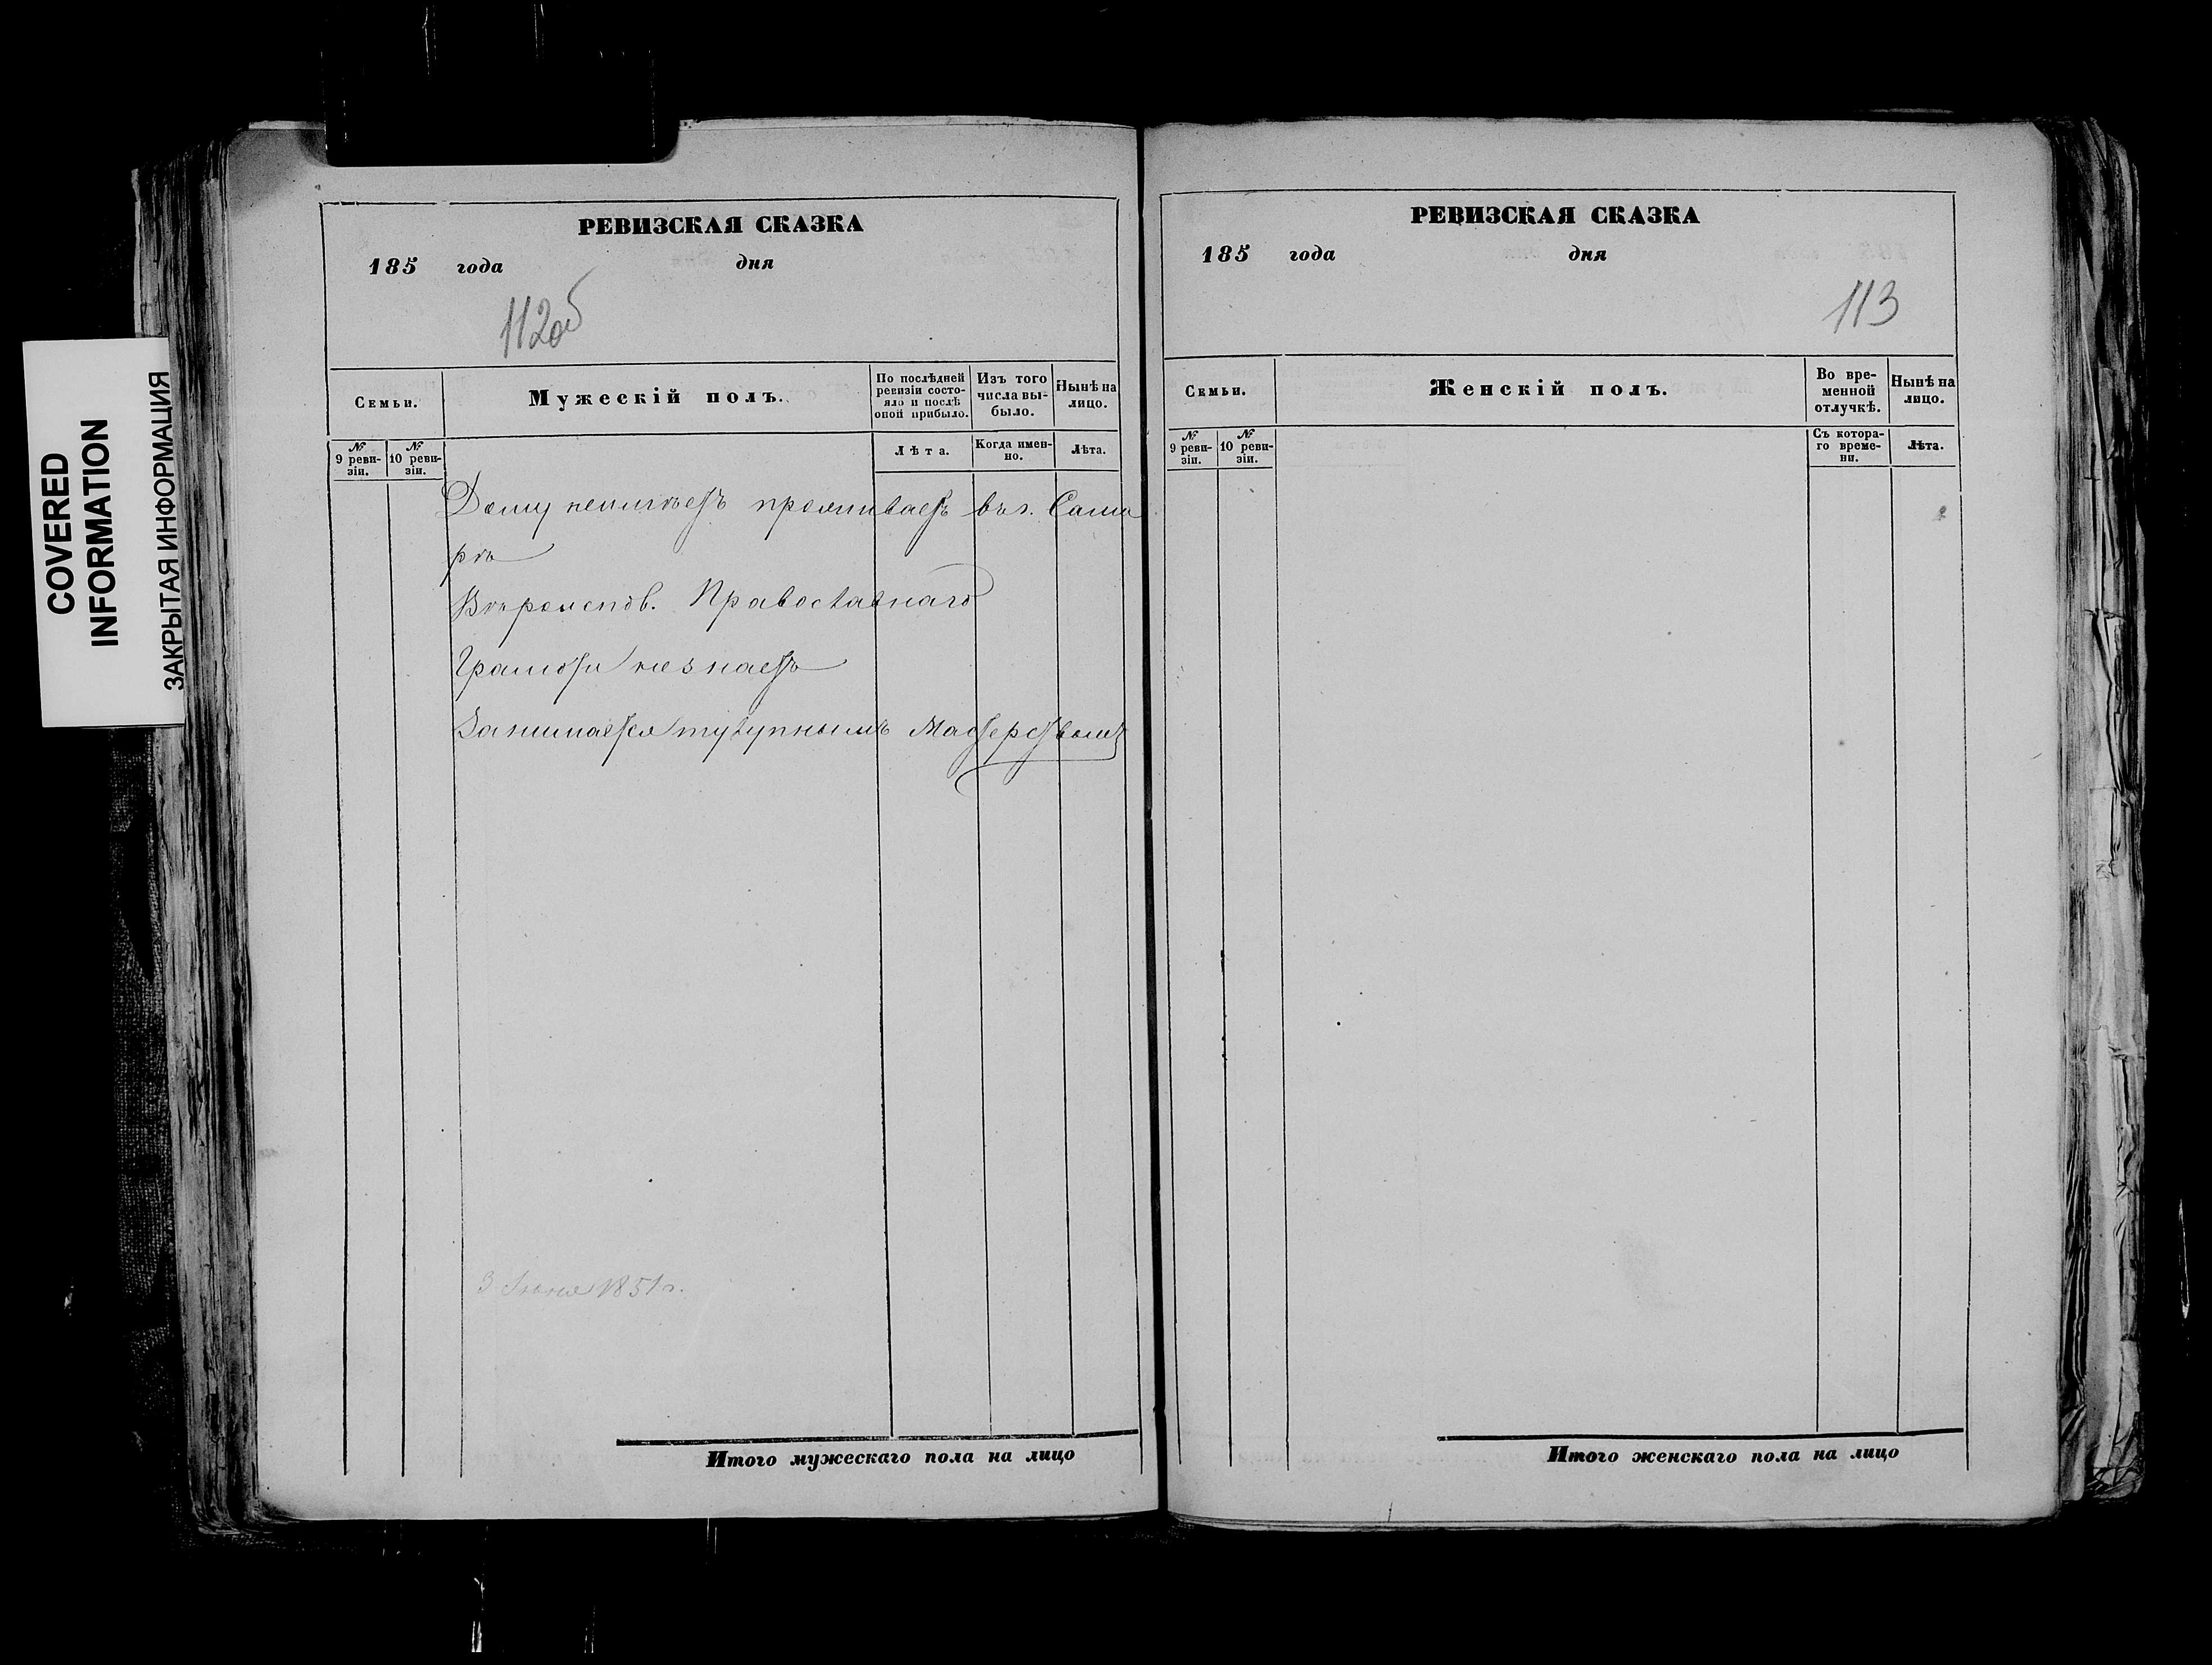 COVERED
INFORMATION
ЗАКРЫТАЯ ИНФОРМАЦИЯ
РЕВИЗСКАЯ СКАЗКА
185 года дня
112об
Семьи.
Мужескій полъ.
По послѣдней
ревизіи состо-
яло и послѣ
оной прибыло.
Изъ того
числа вы-
было.
Нынѣ на
лицо.
№
9 реви-
зіи.
№
10 реви-
зіи.
Лѣта.
Когда имен-
но.
Лѣта.
Дому неимѣетъ проживаетъ въ г. Сама
рѣ
Вѣроиспов. Православнаго
Грамоты незнаетъ
Занимается тулупнымъ Мастерствомъ
3 Іюня 1851 г.
Итого мужескаго пола на лицо
РЕВИЗСКАЯ СКАЗКА
185 года дня
113
Семьи.
Женскій полъ.
Во вре-
менной
отлучкѣ.
Нынѣ на
лицо.
№
9 реви-
зіи.
№
10 реви-
зіи.
Съ котора-
го време-
ни.
Лѣта.
Итого женскаго пола на лицо